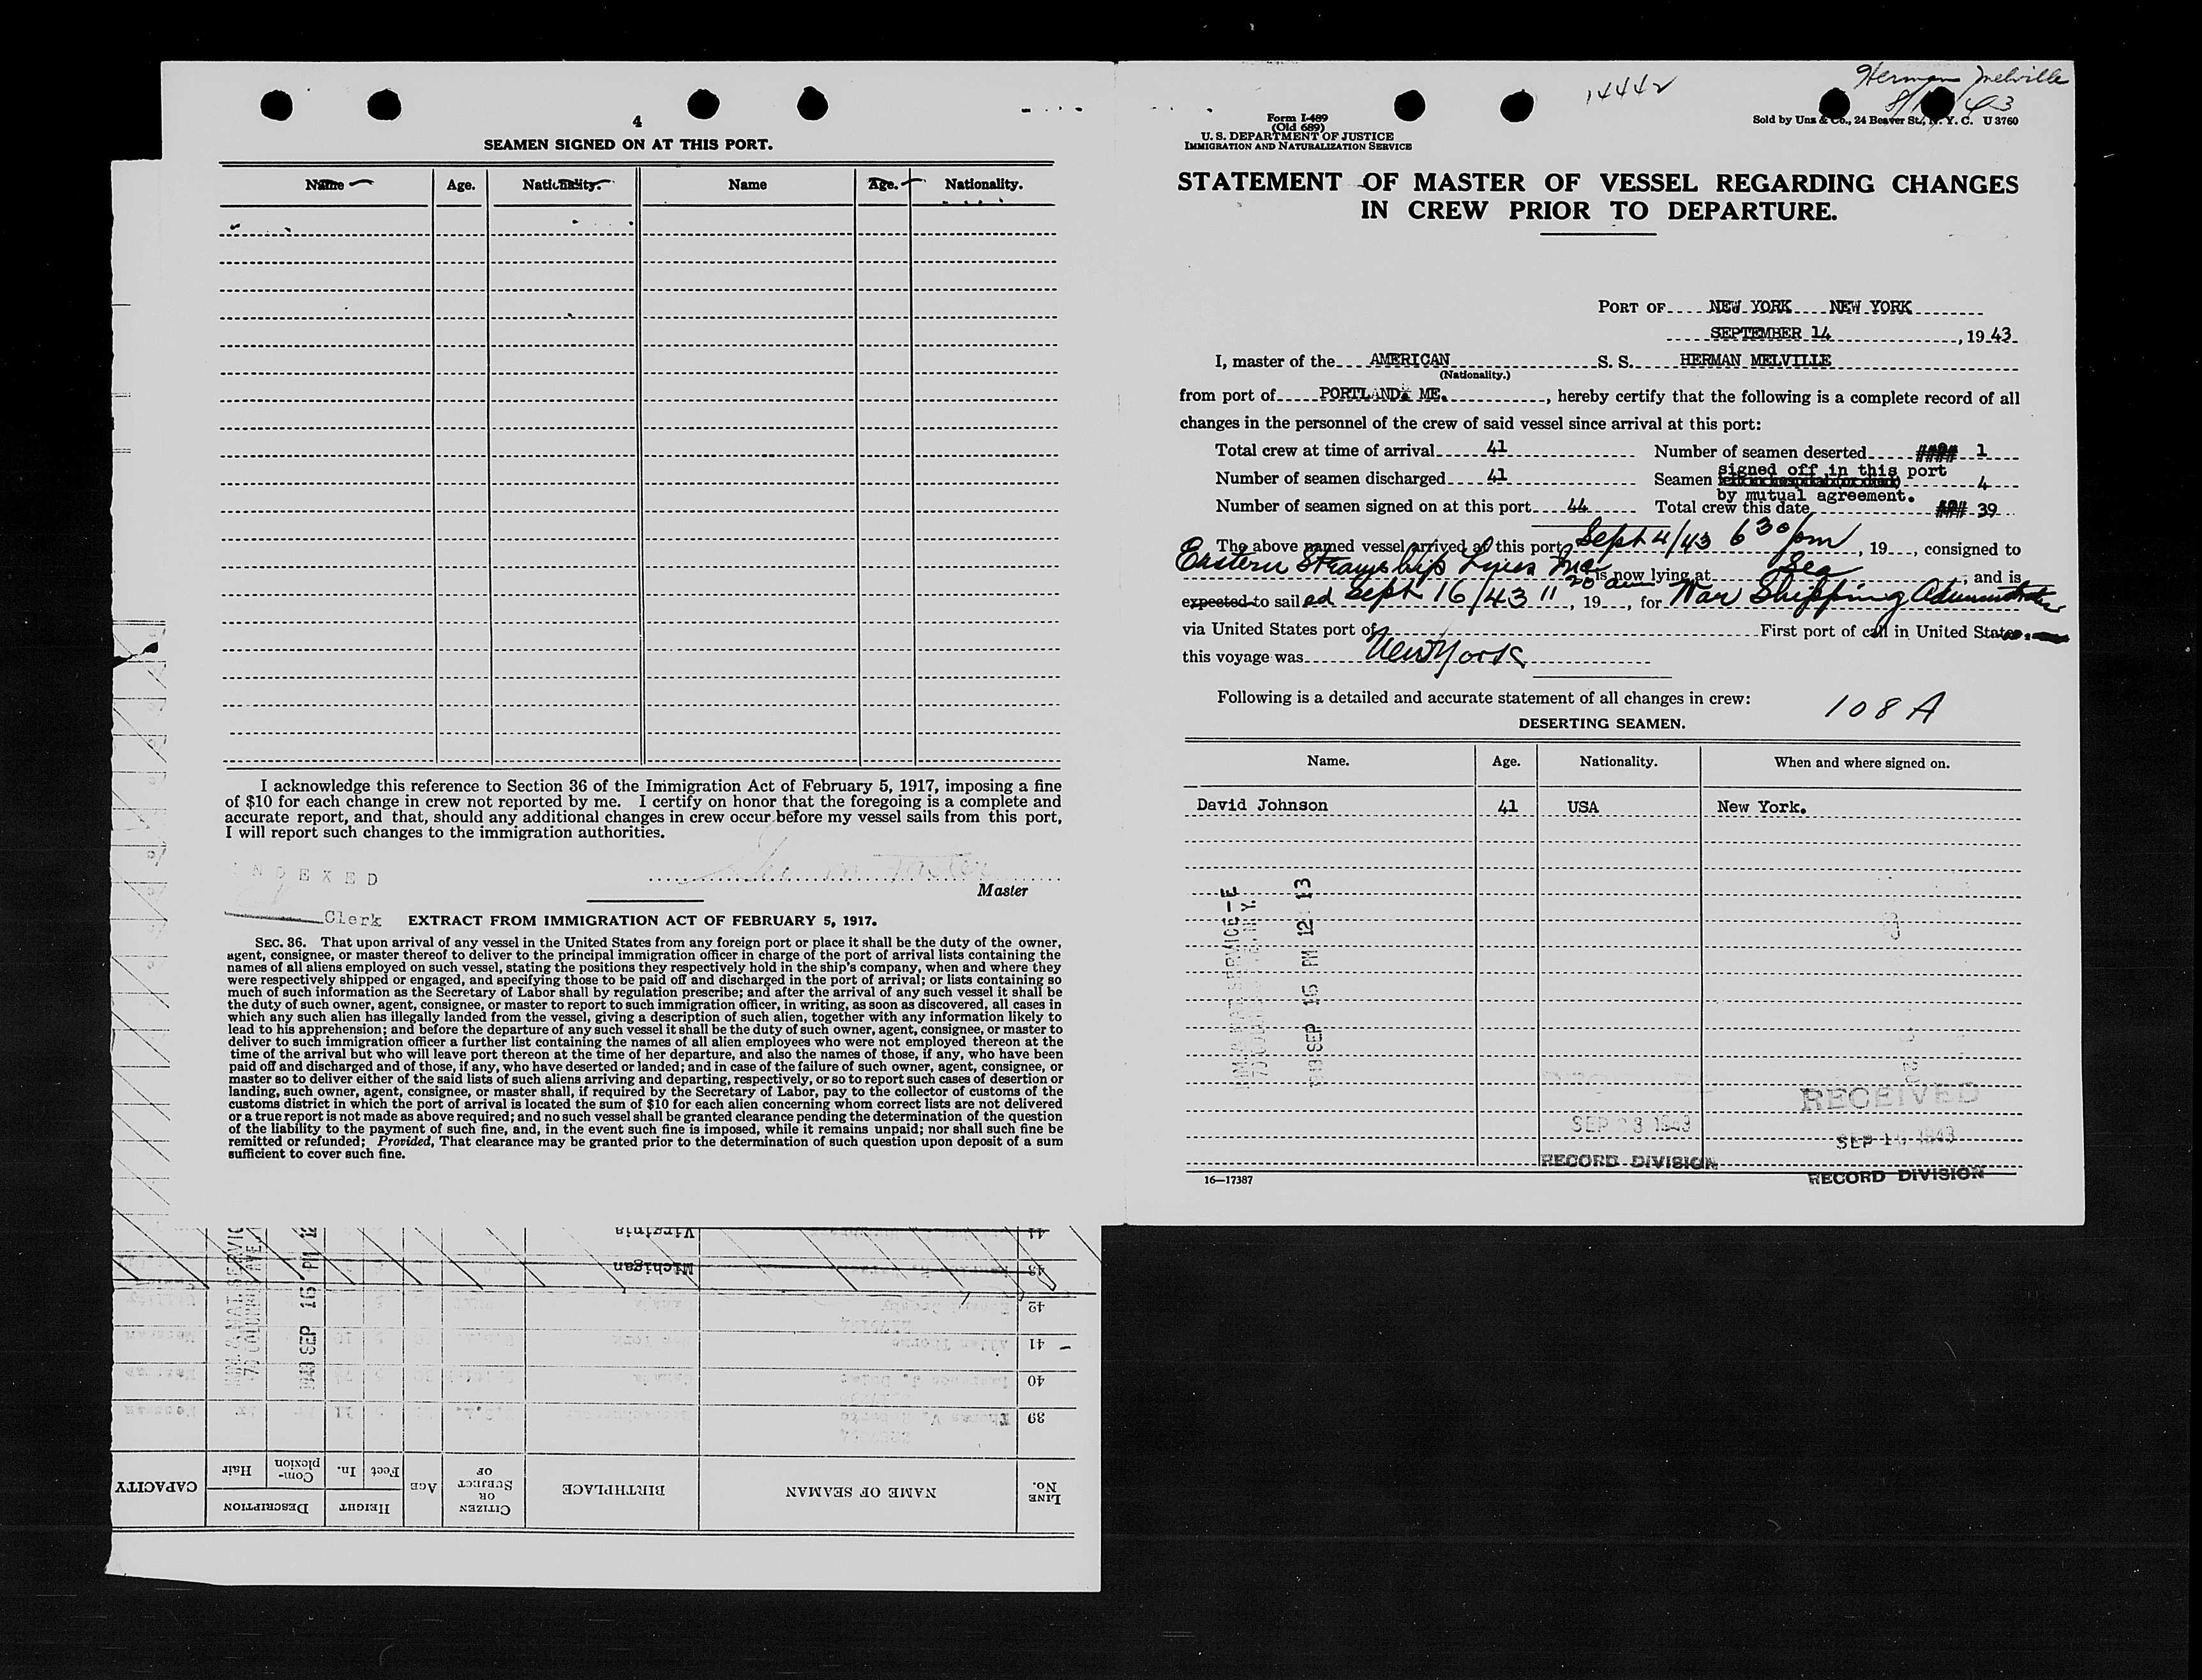 4
SEAMEN SIGNED ON AT THIS PORT.
Name Age. Nationality. Name Age. Nationality.
I acknowledge this reference to Section 36 of the Immigration Act of February 5, 1917, imposing a fine
of $10 for each change in crew not reported by me. I certify on honor that the foregoing is a complete and
accurate report, and that, should any additional changes in crew occur before my vessel sails from this port,
I will report such changes to the immigration authorities.
INDEXED
Master
Clerk
EXTRACT FROM IMMIGRATION ACT OF FEBRUARY 5, 1917.
SEC. 36. That upon arrival of any vessel in the United States from any foreign port or place it shall be the duty of the owner,
agent, consignee, or master thereof to deliver to the principal immigration officer in charge of the port of arrival lists containing the
names of all aliens employed on such vessel, stating the positions they respectively hold in the ship's company, when and where they
were respectively shipped or engaged, and specifying those to be paid off and discharged in the port of arrival; or lists containing so
much of such information as the Secretary of Labor shall by regulation prescribe; and after the arrival of any such vessel it shall be
the duty of such owner, agent, consignee, or master to report to such immigration officer, in writing, as soon as discovered, all cases in
which any such alien has illegally landed from the vessel, giving a description of such alien, together with any information likely to
lead to his apprehension; and before the departure of any such vessel it shall be the duty of such owner, agent, consignee, or master to
deliver to such immigration officer a further list containing the names of all alien employees who were not employed thereon at the
time of the arrival but who will leave port thereon at the time of her departure, and also the names of those, if any, who have been
paid off and discharged and of those, if any, who have deserted or landed; and in case of the failure of such owner, agent, consignee, or
master so to deliver either of the said lists of such aliens arriving and departing, respectively, or so to report such cases of desertion or
landing, such owner, agent, consignee, or master shall, if required by the Secretary of Labor, pay to the collector of customs of the
customs district in which the port of arrival is located the sum of $10 for each alien concerning whom correct lists are not delivered
or a true report is not made as above required; and no such vessel shall be granted clearance pending the determination of the question
of the liability to the payment of such fine, and, in the event such fine is imposed, while it remains unpaid; nor shall such fine be
remitted or refunded; Provided, That clearance may be granted prior to the determination of such question upon deposit of a sum
sufficient to cover such fine.
Virginia 44
Michigan 43
SEP 16 PM 12
42
41
40
39
LINE No. NAME OF SEAMAN BIRTHPLACE CITIZEN OR SUBJECT OF AGE HEIGHT Feet In. DESCRIPTION Complexion Hair CAPACITY
14442
Herman Melville
Form I-489
(Old 689)
U. S. DEPARTMENT OF JUSTICE
IMMIGRATION AND NATURALIZATION SERVICE
Sold by Unz & Co., 24 Beaver St., N. Y. C. U 3760
STATEMENT OF MASTER OF VESSEL REGARDING CHANGES
IN CREW PRIOR TO DEPARTURE.
PORT OF NEW YORK NEW YORK
SEPTEMBER 14, 1943
I, master of the AMERICAN S. S. HERMAN MELVILLE
(Nationality.)
from port of PORTLAND, ME., hereby certify that the following is a complete record of all
changes in the personnel of the crew of said vessel since arrival at this port:
Total crew at time of arrival 41 Number of seamen deserted 1
Number of seamen discharged 41 Seamen signed off in this port 4
by mutual agreement.
Number of seamen signed on at this port 44 Total crew this date 39
The above named vessel arrived at this port Sept 4/43 6 30 pm, 19, consigned to
Eastern Steamship Lines Inc is now lying at Sea, and is
expected to sail ed Sept 16/43 11 20 am, 19, for War Shipping Administration
via United States port of First port of call in United States
this voyage was New York
Following is a detailed and accurate statement of all changes in crew:
108 A
DESERTING SEAMEN.
Name. Age. Nationality. When and where signed on.
David Johnson 41 USA New York.
1943 SEP 16 PM 12 13
RECEIVED
SEP 1943
RECORD DIVISION
RECORD DIVISION
16—17387